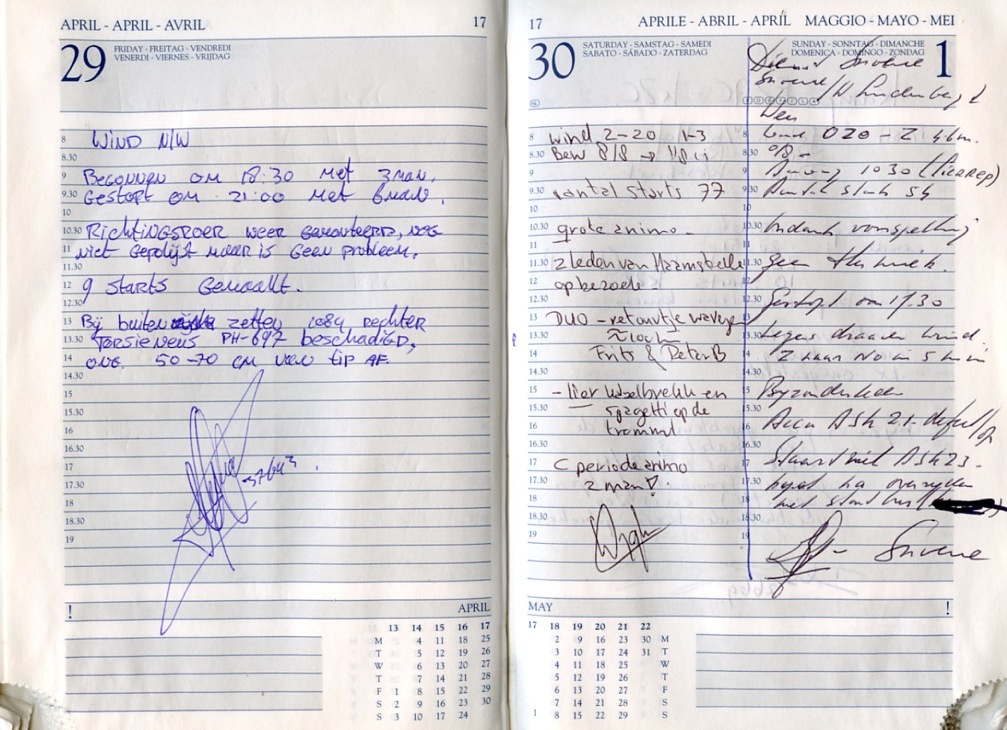 APRIL - APRIL - AVRIL
17
29
FRIDAY - FREITAG - VENDREDI
VENERDI - VIERNES - VRIJDAG
8 WIND N/W
8.30
9 BEGONNEN OM 18:30 MET 3 MAN.
9.30 GESTOPT OM 21:00 MET 6 MAN.
10
10.30 RICHTINGSROER WEER GEMONTEERD, NOG
11 NIET GEPOLIJST MAAR IS GEEN PROBLEEM.
11.30
12 9 STARTS GEMAAKT.
12.30
13 BIJ BUITEN ZETTEN RECHTER
13.30 TORSIENEUS PH-697 BESCHADIGD,
14 ONG. 50-70 CM VAN TIP AF.
14.30
15
15.30
16
16.30
17
17.30
18
18.30
19
!
APRIL
13 14 15 16 17
M 4 11 18 25
T 5 12 19 26
W 6 13 20 27
T 7 14 21 28
F 1 8 15 22 29
S 2 9 16 23 30
S 3 10 17 24
17
APRILE - ABRIL - APRÍL MAGGIO - MAYO - MEI
30
SATURDAY - SAMSTAG - SAMEDI
SABATO - SÁBADO - ZATERDAG
8 wind 2-20 1-3
8.30 Bew 8/8 →
9
9.30 aantal starts 77
10
10.30 grote animo -
11
11.30 2 leden van Haamstede
12 op bezoek
12.30
13 DUO - retourtje
13.30
14 Frits & Peter B
14.30
15 - lier kabelbreuk en
15.30 spagetti op de
16 trommel
16.30
17 C periode animo
17.30 2 man!
18
18.30
19
SUNDAY - SONNTAG - DIMANCHE
DOMENICA - DOMINGO - ZONDAG
1
Dienst
8 020 -
8.30 0/8 -
9 1030
9.30 Aantal starts 54
10
10.30 Ondanks voorspelling
11
11.30 geen thermiek.
12
12.30 Gestopt om 17.30
13
13.30 Tegen draaien wind.
14 Z naar NO in 5 min
14.30
15 Byzonderheden
15.30
16 Accu ASK 21 - defect
16.30
17 Staartwiel ASK 23 -
17.30 na overryden
18 met
18.30
19
MAY
!
17 18 19 20 21 22
2 9 16 23 30 M
3 10 17 24 31 T
4 11 18 25 W
5 12 19 26 T
6 13 20 27 F
7 14 21 28 S
1 8 15 22 29 S